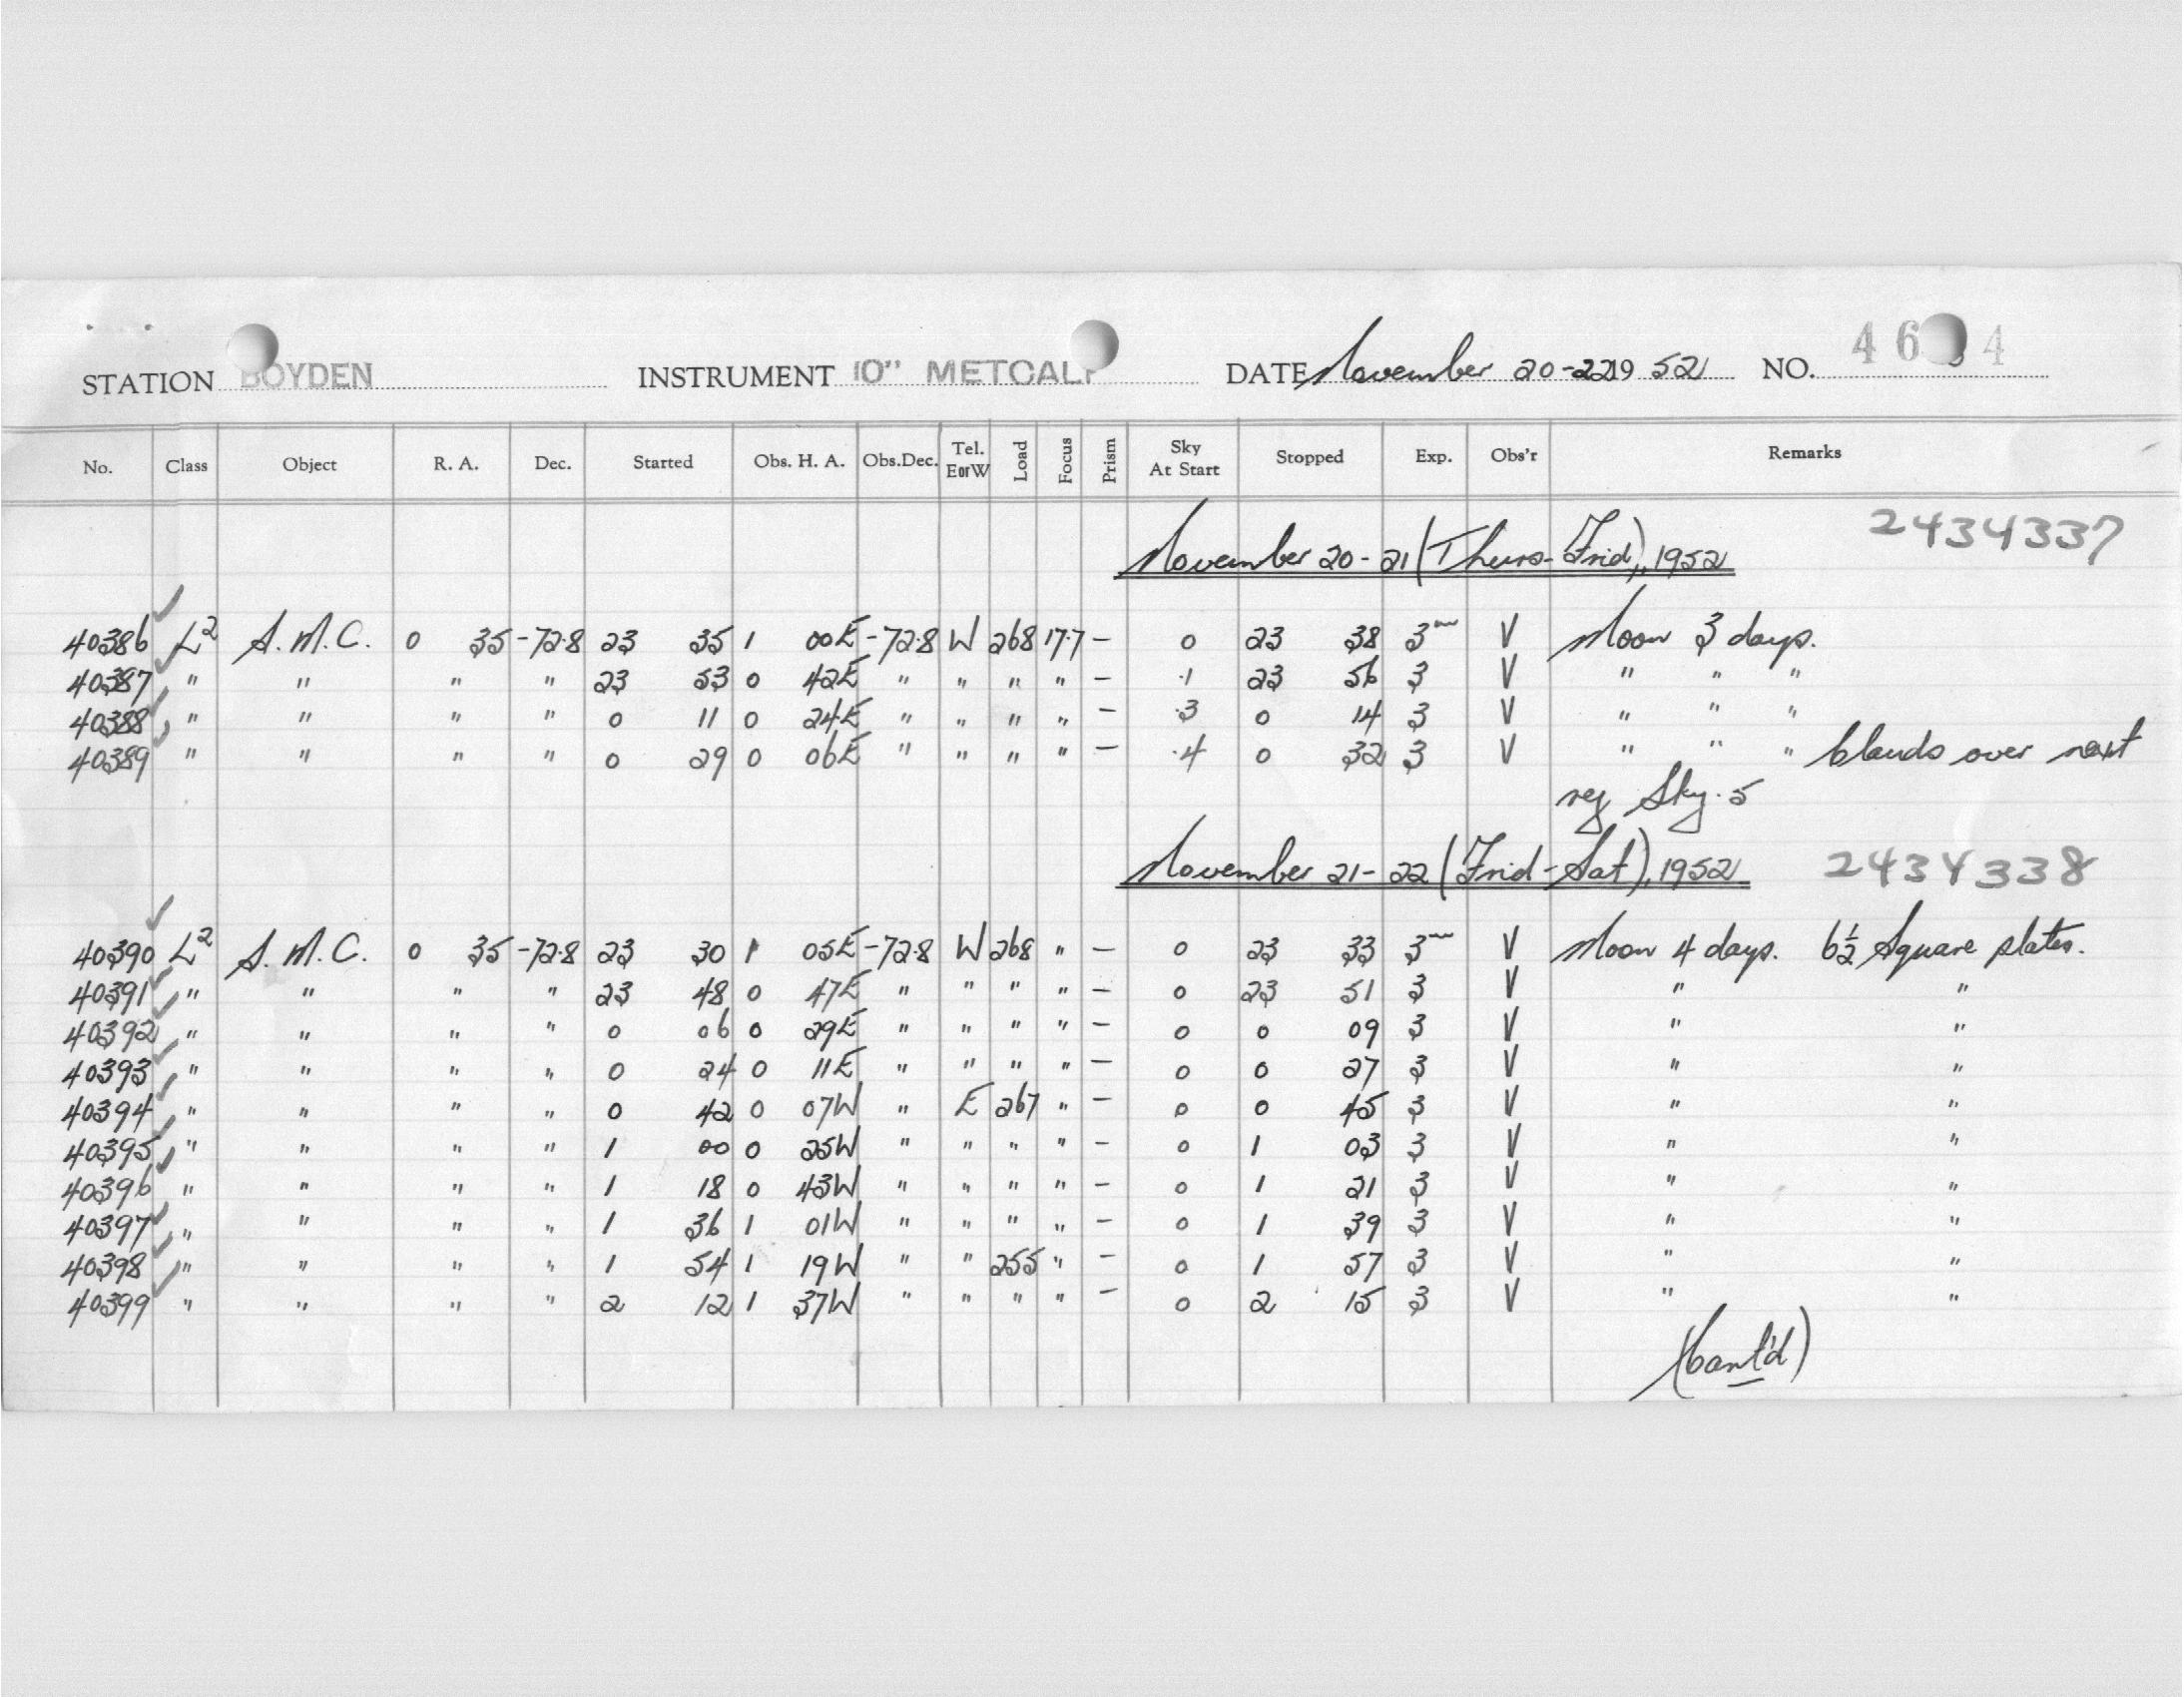 STATION BOYDEN INSTRUMENT 10" METCALF DATE November 20-22 19 52 NO. 46 4
No. Class Object R. A. Dec. Started Obs. H. A. Obs.Dec. Tel. EorW Load Focus Prism Sky At Start Stopped Exp. Obs'r Remarks
November 20-21 (Thurs-Frid), 1952 2434337
40386 L² S.M.C. 0 35 -72.8 23 35 1 00E -72.8 W 268 17.7 - 0 23 38 3ᵐ V Moon 3 days.
40387 " " " " 23 53 0 42E " " " " - .1 23 56 3 V " " "
40388 " " " " 0 11 0 24E " " " " - .3 0 14 3 V " " "
40389 " " " " 0 29 0 06E " " " " - .4 0 32 3 V " " " Clouds over next
reg Sky .5
November 21-22 (Frid-Sat), 1952 2434338
40390 L² S.M.C. 0 35 -72.8 23 30 1 05E -72.8 W 268 " - 0 23 33 3ᵐ V Moon 4 days. 6½ Square plates.
40391 " " " " 23 48 0 47E " " " " - 0 23 51 3 V " "
40392 " " " " 0 06 0 29E " " " " - 0 0 09 3 V " "
40393 " " " " 0 24 0 11E " " " " - 0 0 27 3 V " "
40394 " " " " 0 42 0 07W " E 267 " - 0 0 45 3 V " "
40395 " " " " 1 00 0 25W " " " " - 0 1 03 3 V " "
40396 " " " " 1 18 0 43W " " " " - 0 1 21 3 V " "
40397 " " " " 1 36 1 01W " " " " - 0 1 39 3 V " "
40398 " " " " 1 54 1 19W " " 255 " - 0 1 57 3 V " "
40399 " " " " 2 12 1 37W " " " " - 0 2 15 3 V " "
(Cont'd)